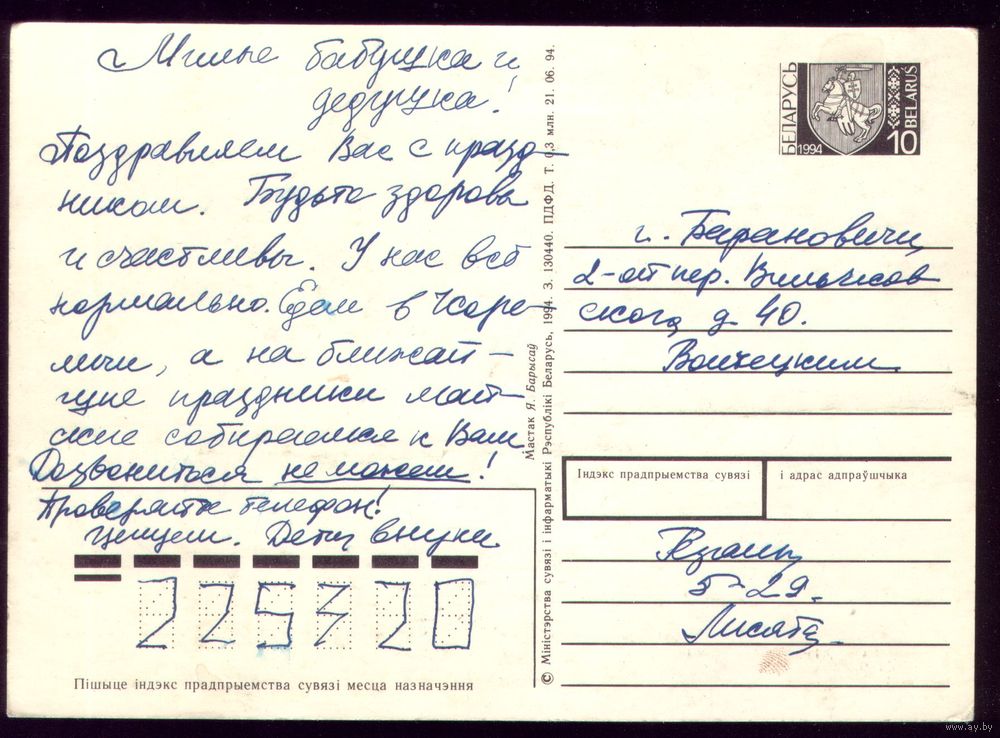 Милые бабушка и
дедушка!
Поздравляем Вас с празд-
ником. Будьте здоровы
и счастливы. У нас всё
нормально. Едем в Коре-
личи, а на ближай-
шие праздники май-
ские собираемся к Вам.
Дозвониться не можем!
Проверяйте телефон!
Целуем. Дети, внуки.
225320
Пішыце індэкс прадпрыемства сувязі месца назначэння
Мастак Я. Барысаў
© Міністэрства сувязі і інфарматыкі Рэспублікі Беларусь, 1994. З. 130440. ПДФД. Т. 0,3 млн. 21. 06. 94.
БЕЛАРУСЬ
1994
10
BELARUS
г. Барановичи
2-ой пер.
д 40.
Войтецким
Індэкс прадпрыемства сувязі
і адрас адпраўшчыка
5-29.
www.ay.by